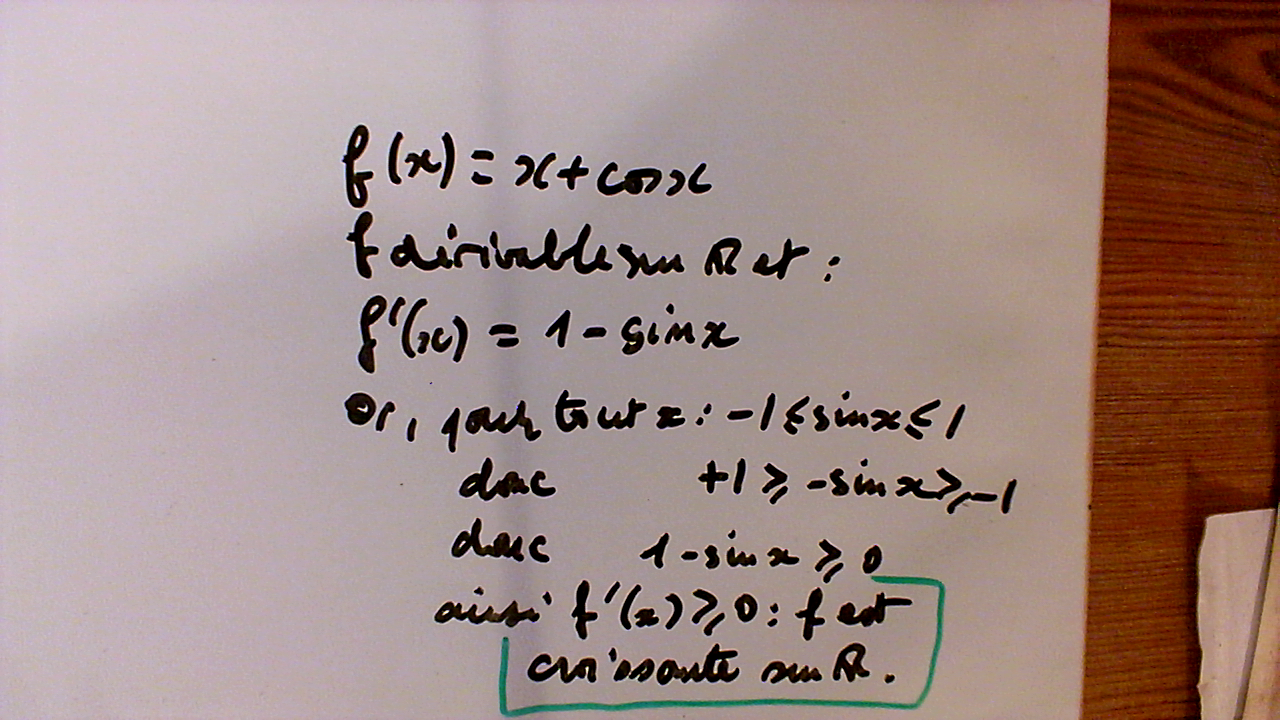 f(x) = x + cos x
f dérivable sur ℝ et :
f'(x) = 1 - sin x
Or, pour tout x : -1 ≤ sin x ≤ 1
donc +1 ≥ -sin x ≥ -1
donc 1 - sin x ≥ 0
ainsi f'(x) ≥ 0 : f est
croissante sur ℝ.